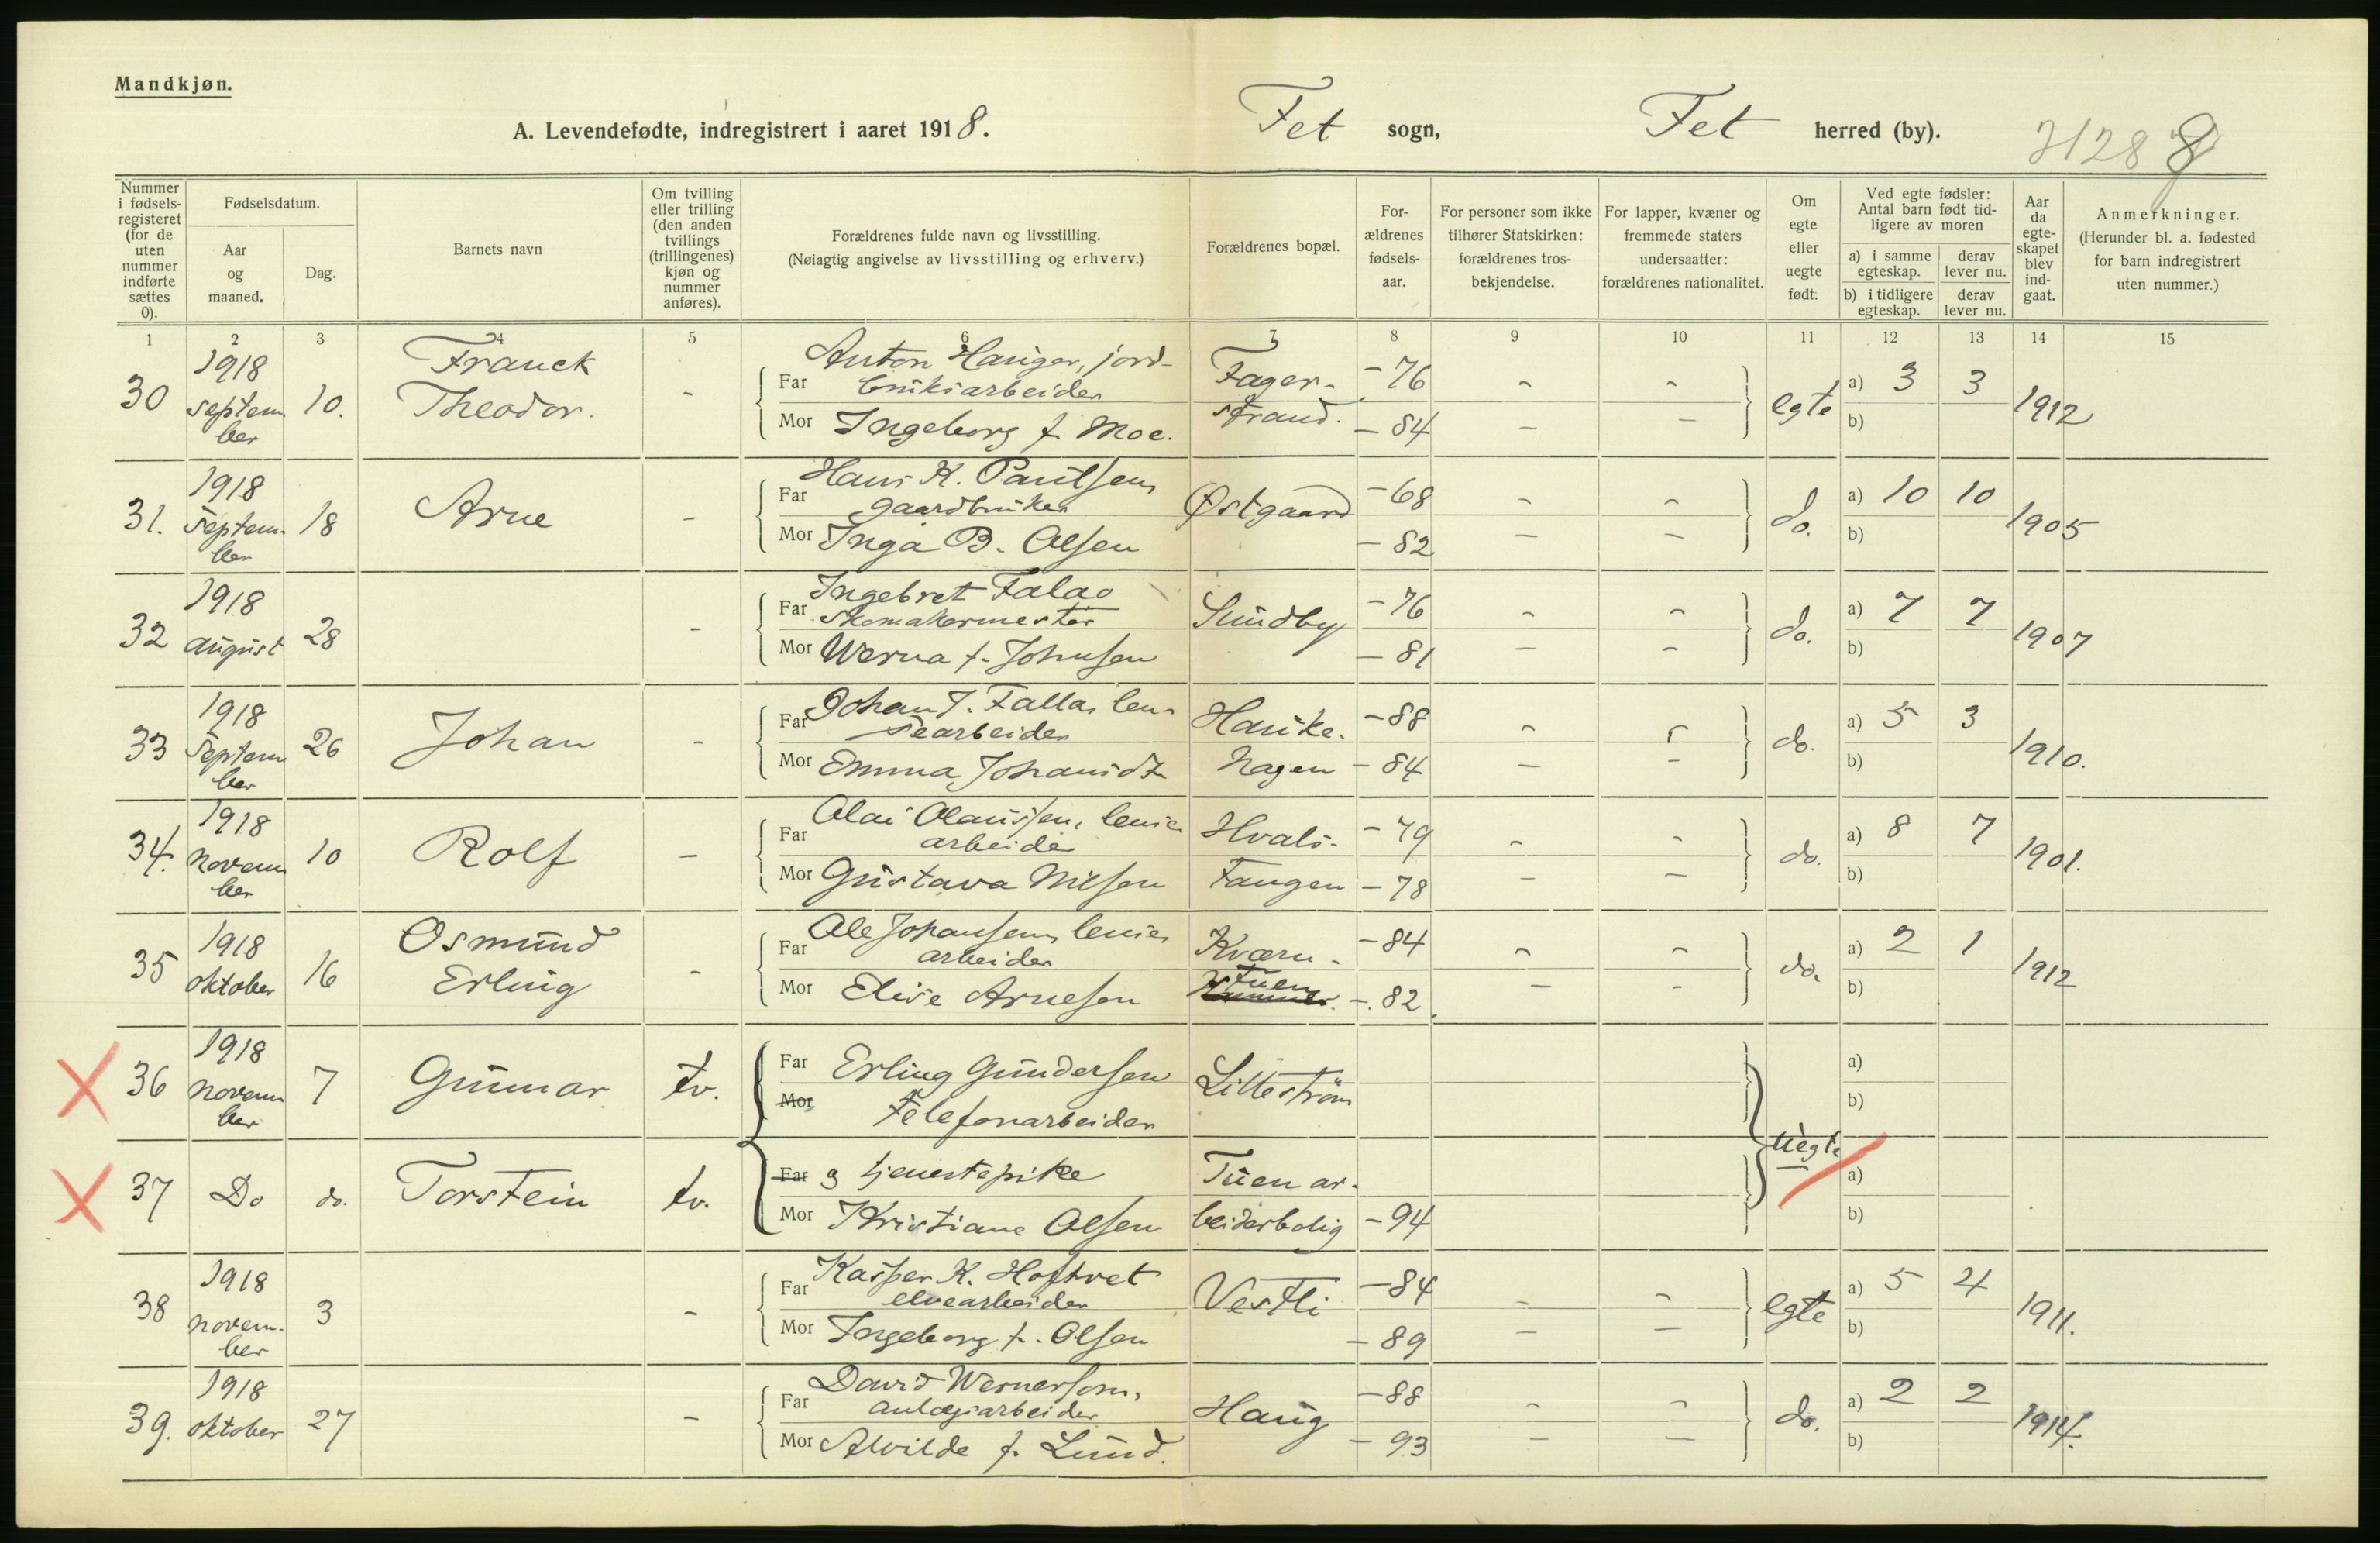 Mandkjøn.
A. Levendefødte, indregistrert i aaret 1918.
Fet sogn,
Fet herred (by).
3128 8
Nummer i fødsels-registeret (for de uten nummer indførte sættes 0).
Fødselsdatum.
Aar og maaned.
Dag.
Barnets navn
Om tvilling eller trilling (den anden tvillings (trillingenes) kjøn og nummer anføres).
Forældrenes fulde navn og livsstilling.
(Nøiagtig angivelse av livsstilling og erhverv.)
Forældrenes bopæl.
For-ældrenes fødsels-aar.
For personer som ikke tilhører Statskirken: forældrenes tros-bekjendelse.
For lapper, kvæner og fremmede staters undersaatter: forældrenes nationalitet.
Om egte eller uegte født.
Ved egte fødsler: Antal barn født tid-ligere av moren
a) i samme egteskap.
derav lever nu.
b) i tidligere egteskap.
derav lever nu.
Aar da egte-skapet blev ind-gaat.
Anmerkninger.
(Herunder bl. a. fødested for barn indregistrert uten nummer.)
1 2 3 4 5 6 7 8 9 10 11 12 13 14 15
30 1918 septem ber 10. Franck Theodor. -
Far Anton Hauger, jord-
bruksarbeider
Mor Ingeborg f. Moe.
Fager-
strand.
-76
-84
egte a) 3 3 b) 1912
31. 1918 Septem- ber 18 Arne -
Far Hans K. Paulsen
gaardbruker
Mor Inga B. Olsen
Østgaard
-68
-82
do. a) 10 10 b) 1905
32 1918 august 28 -
Far Ingebret Falao
skomakermester
Mor Werna f. Johnsen
Sundby
-76
-81
do. a) 7 7 b) 1907
33 1918 Septem ber 26 Johan -
Far Johan J. Fallas len-
searbeider
Mor Emma Johansdt
Hauke-
hagen
-88
-84
do. a) 5 3 b) 1910.
34. 1918 novem ber 10 Rolf -
Far Olai Olaussen, lense
arbeider
Mor Gustava Nilsen
Hvals-
tangen
-79
-78
do. a) 8 7 b) 1901.
35 1918 oktober 16 Osmund Erling -
Far Ole Johansen, lense
arbeider
Mor Elise Arnesen
Kværn-
tuen
-84
-82
do. a) 2 1 b) 1912
36 1918 novem ber 7 Gunnar tv.
Far Erling Gundersen
Mor Telefonarbeider
Lillestrøm
a) b)
37 Do do. Torstein tv.
Far g tjenestepike
Mor Kristiane Olsen
Tuen ar-
beiderbolig
-94
uegte a) b)
38 1918 novem- ber 3 -
Far Kasper K. Hoftvet
elvearbeider
Mor Ingeborg f. Olsen
Vestli
-84
-89
egte a) 5 4 b) 1911.
39. 1918 oktober 27 -
Far David Wernersson,
anlægsarbeider
Mor Alvilde f. Lund.
Haug
-88
-93
do. a) 2 2 b) 1914.